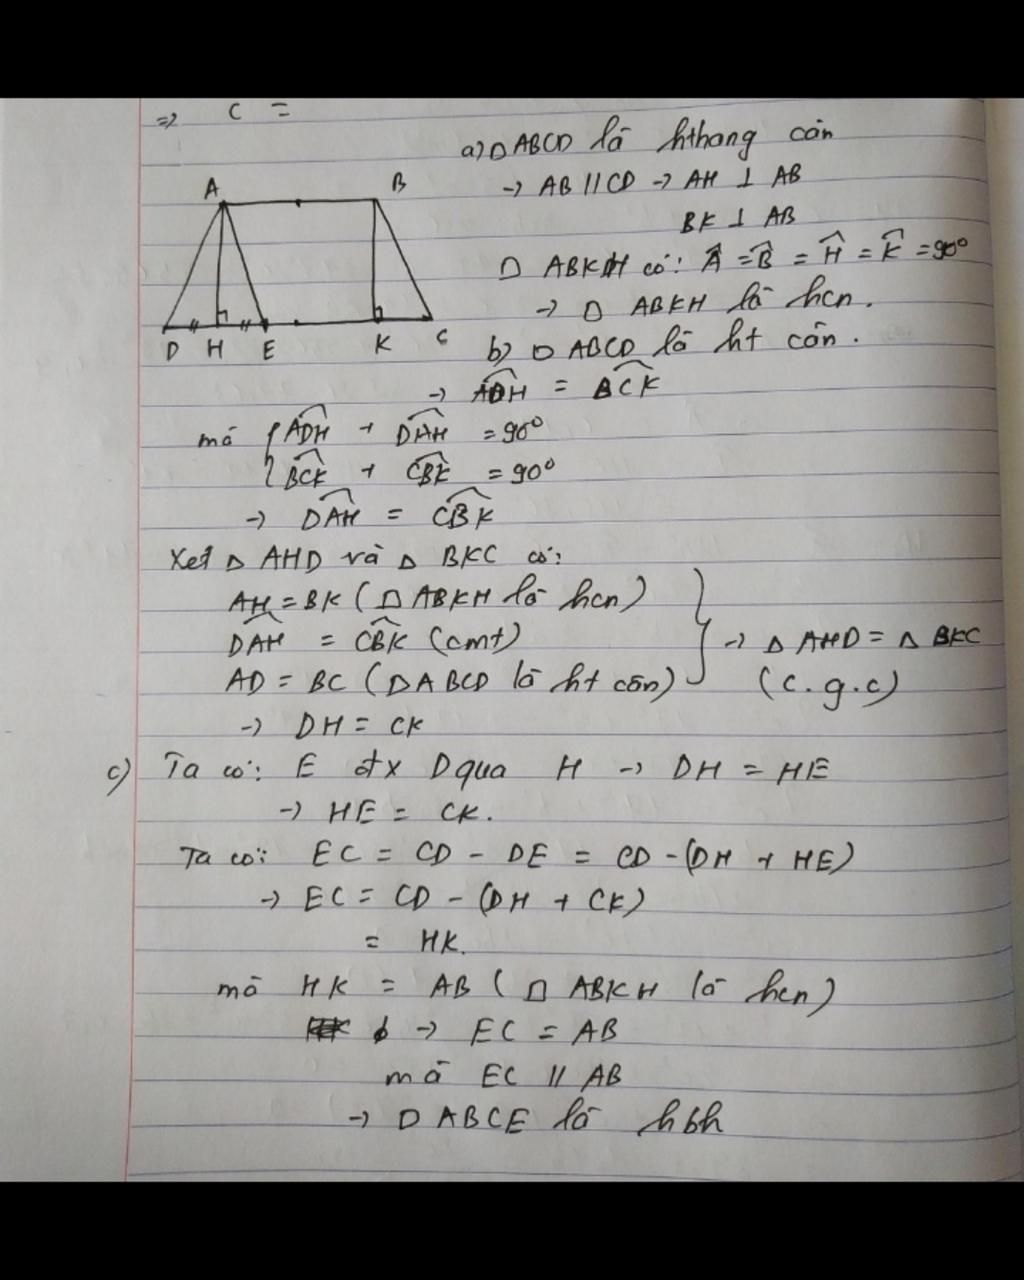 => C =
a) □ ABCD là hthang cân
-> AB // CD -> AH ⊥ AB
BK ⊥ AB
□ ABKH có: Â = B̂ = Ĥ = K̂ = 90°
-> □ ABKH là hcn.
A B
D H E K C
b) □ ABCD là ht cân.
-> \widehat{ADH} = \widehat{BCK}
mà { \widehat{ADH} + \widehat{DAH} = 90°
{ \widehat{BCK} + \widehat{CBK} = 90°
-> \widehat{DAH} = \widehat{CBK}
Xét △ AHD và △ BKC có:
AH = BK ( □ ABKH là hcn)
\widehat{DAH} = \widehat{CBK} (cmt)
AD = BC ( □ ABCD là ht cân)
} -> △ AHD = △ BKC
(c.g.c)
-> DH = CK
c) Ta có: E đx D qua H -> DH = HE
-> HE = CK.
Ta có: EC = CD - DE = CD - (DH + HE)
-> EC = CD - (DH + CK)
= HK.
mà HK = AB ( □ ABKH là hcn)
-> EC = AB
mà EC // AB
-> □ ABCE là hbh